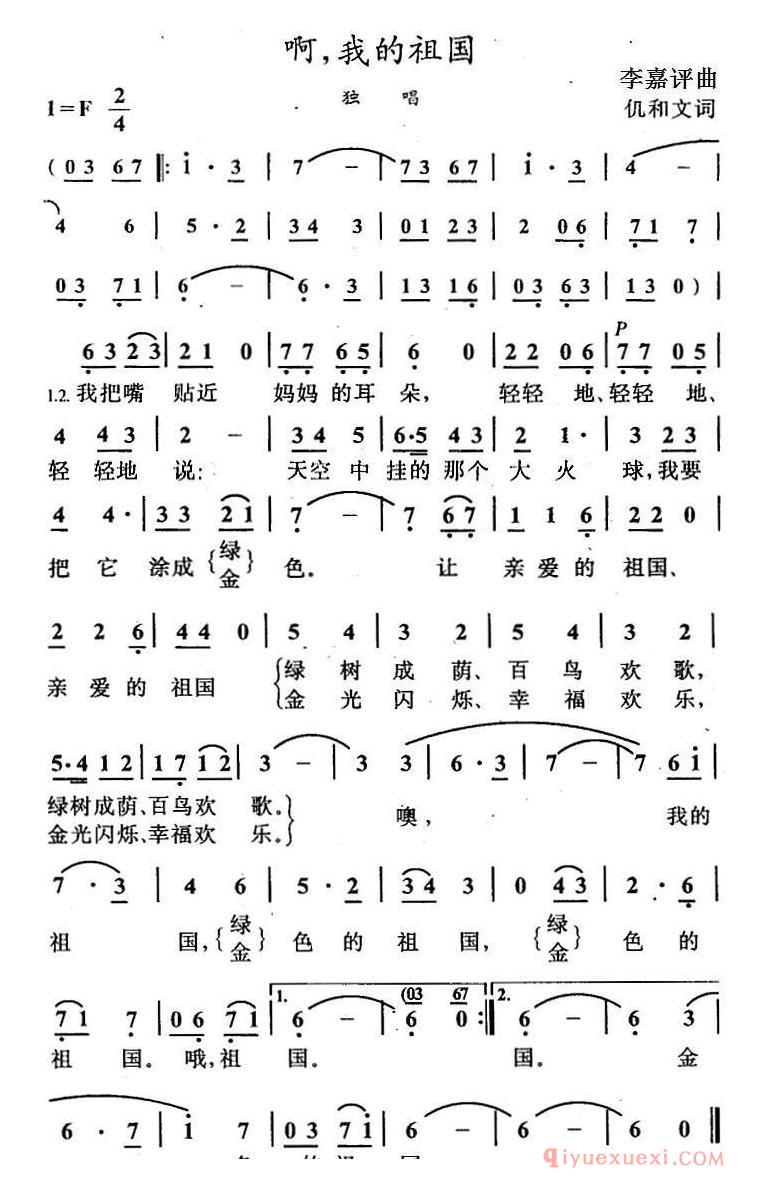 啊,我的祖国
李嘉评曲
1=F 2/4 独 唱 仉和文词
(03 67 ‖: i·3 | 7 - | 73 67 | i·3 | 4 -
4 6 | 5·2 | 34 3 | 01 23 | 2 06 | 71 7 |
03 71 | 6 - | 6·3 | 13 16 | 03 63 | 13 0) |
P
63 23 | 21 0 | 77 66 | 6 0 | 22 06 | 77 05 |
1.2. 我把嘴 贴近 妈妈的耳 朵, 轻轻 地、轻轻 地、
4 43 | 2 - | 34 5 | 6·5 43 | 2 1· | 3 23 |
轻 轻地 说: 天空 中 挂的那个 大 火 球,我要
4 4· | 33 21 | 7 - | 7 67 | 11 6 | 22 0 |
把 它 涂成{绿 金} 色。 让 亲爱的 祖国、
2 2 6 | 44 0 | 5 4 | 3 2 | 5 4 | 3 2 |
亲 爱的 祖国 {绿 树 成 荫、百 鸟 欢 歌,
金 光 闪 烁、幸 福 欢 乐,
5·4 12 | 17 12 | 3 - | 3 3 | 6·3 | 7 - | 7 6i |
绿树成荫、百鸟欢 歌。} 噢, 我的
金光闪烁、幸福欢 乐。
7·3 | 4 6 | 5·2 | 34 3 | 0 43 | 2·6 |
祖 国,{绿 金} 色的 祖 国, {绿 金} 色 的
1. (03 67 2.
71 7 | 06 71 | 6 - | 6 0 :‖ 6 - | 6 3 |
祖 国。 哦,祖 国。 国。 金
6·7 | i 7 | 03 7i | 6 - | 6 0 ‖
qiyuexuexi.com